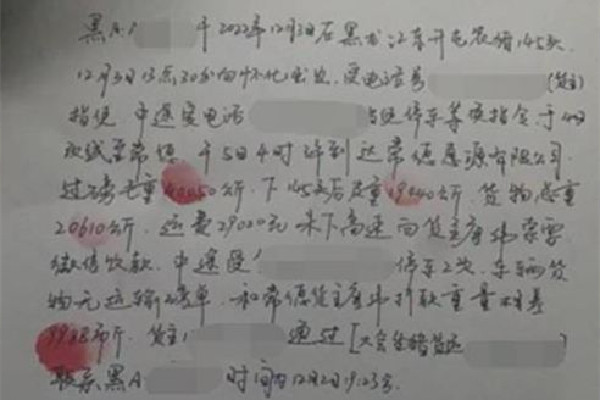 黑A 于2022年12月3日在黑龙江东 装猪145头
12月3日13点30分向怀化出发 受电话号 (货主)
指使 中途受电话 指使停车等候指令于4日
改线至常德 于5日4时许到达常德 有限公司
过磅毛重40050公斤.下145头后皮重19440公斤.货物总重
20610公斤.运费29020元未下高速向货主 索要
微信收款.中途受 停车2次.车辆货
物无运输磅单.和常德货主 重量相差
9988市斤.货主 通过[大 生猪货运
联系黑A 时间为12月2日19:23分.